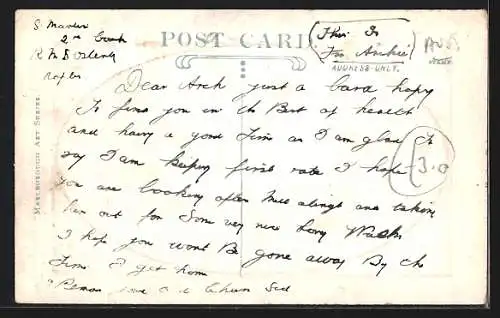 S Marden
2nd Cook
POST CARD.
(This Is
For Archie)
ADDRESS ONLY.
MARLBOROUGH ART SERIES.
Dear Arch just a Card hoping
To find you in the Best of health
and having a good Time as I am glad to
say I am keeping first rate I hope
You are looking after Miss and taking
her out for Some very nice Long Walks
I hope you wont Be gone away By the
Time I get home
3.0